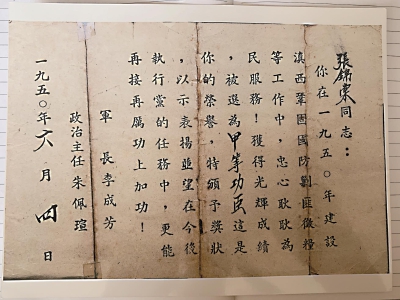 張錦東同志：
你在一九五〇年建設
滇西鞏固國防剿匪徵糧
等工作中，忠心耿耿為
民服務！獲得光輝成績
，被選為甲等功臣這是
你的榮譽，特頒予獎狀
，以示表揚並望在今後
執行黨的任務中，更能
再接再厲功上加功！
軍長李成芳
政治主任朱佩瑄
一九五〇年六月四日